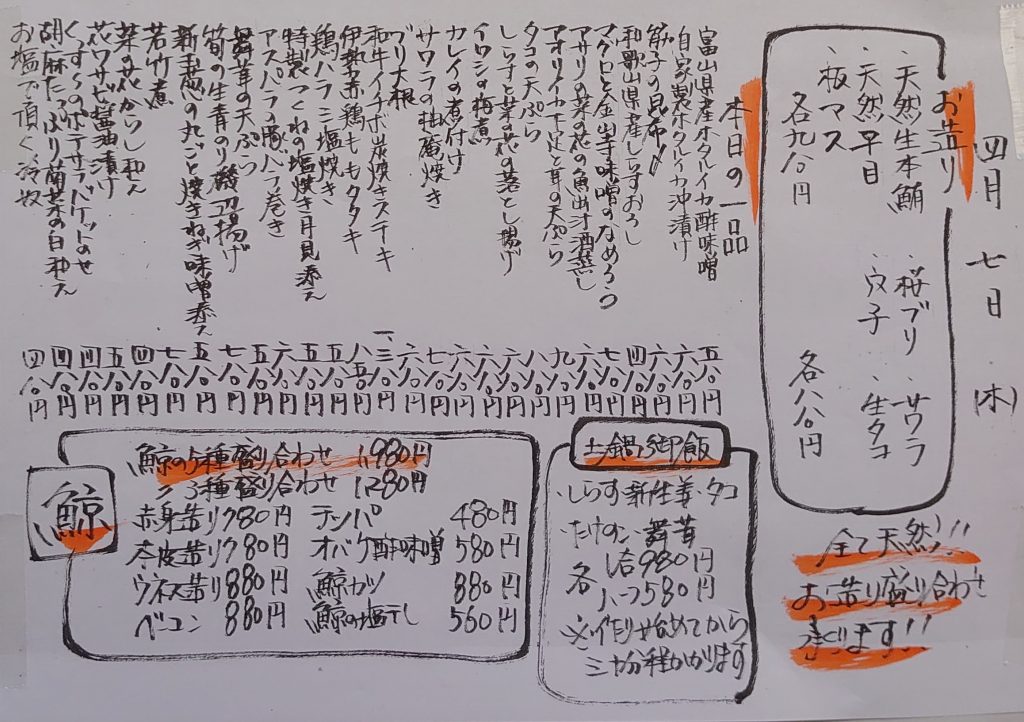 四月七日(木)
お造り
・天然生本鮪 ・桜ブリ ・サワラ
・天然平目 ・穴子 ・生タコ
・板マス
各九八〇円
各八八〇円
全て天然!!
お造り盛り合わせ
承ります!!
本日の一品
富山県産ホタルイカ酢味噌 五八〇円
自家製ホタルイカ沖漬け 六八〇円
筋子の昆布〆 六八〇円
和歌山県産しらすおろし 四八〇円
マグロと金山寺味噌のなめろう 七八〇円
アサリと菜の花の魚出汁酒蒸し 六八〇円
アオリイカ下足と茸の天ぷら 九八〇円
タコの天ぷら 八八〇円
しらすと菜の花の落とし揚げ 六八〇円
イワシの梅煮 六八〇円
カレイの煮付け 六八〇円
サワラの柚庵焼き 七八〇円
ブリ大根 六八〇円
和牛イチボ炭焼きステーキ
伊勢赤鶏ももタタキ 八五〇円
鶏ハラミ塩焼き 五八〇円
特製つくねの塩焼き月見添え
アスパラの豚バラ巻き
舞茸の天ぷら
筍の生青のり磯辺揚げ
新玉葱の丸ごと焼きねぎ味噌添え
若竹煮
菜の花からし和え
花ワサビ醤油漬け
くずしのポテサラバケットのせ
胡麻たっぷり菊菜の白和え
お塩で頂く冷奴 四八〇円
土鍋御飯
・しらす・新生姜・タコ
・たけのこ・舞茸
各 1合980円
ハーフ580円
※作り始めてから
三十分程かかります
鯨
鯨の5種盛り合わせ 1,980円
〃3種盛り合わせ 1,280円
赤身造り 780円 テッパ 480円
本皮造り 780円 オバケ酢味噌 580円
ウネス造り 880円 鯨カツ 880円
ベーコン 880円 鯨の塩干し 560円